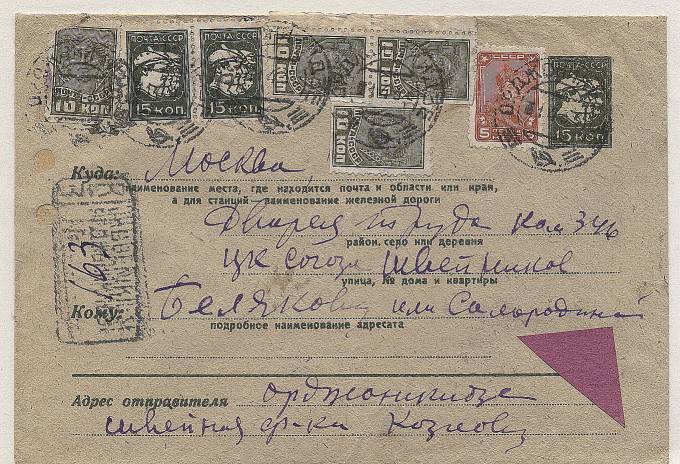 ПОЧТА СССР
15 КОП.
ПОЧТА СССР
15 КОП.
10 КОП.
10 КОП.
10 КОП.
10 КОП.
СССР
5
15 КОП
Куда: Москва,
наименование места, где находится почта и области или края,
а для станций – наименование железной дороги
Дворец труда ком 346
район, село или деревня
ЦК союза швейников
улица, № дома и квартиры
Кому: Белякову или Самородиной
подробное наименование адресата
163
Адрес отправителя орджоникидзе
швейная ф-ка Козлову